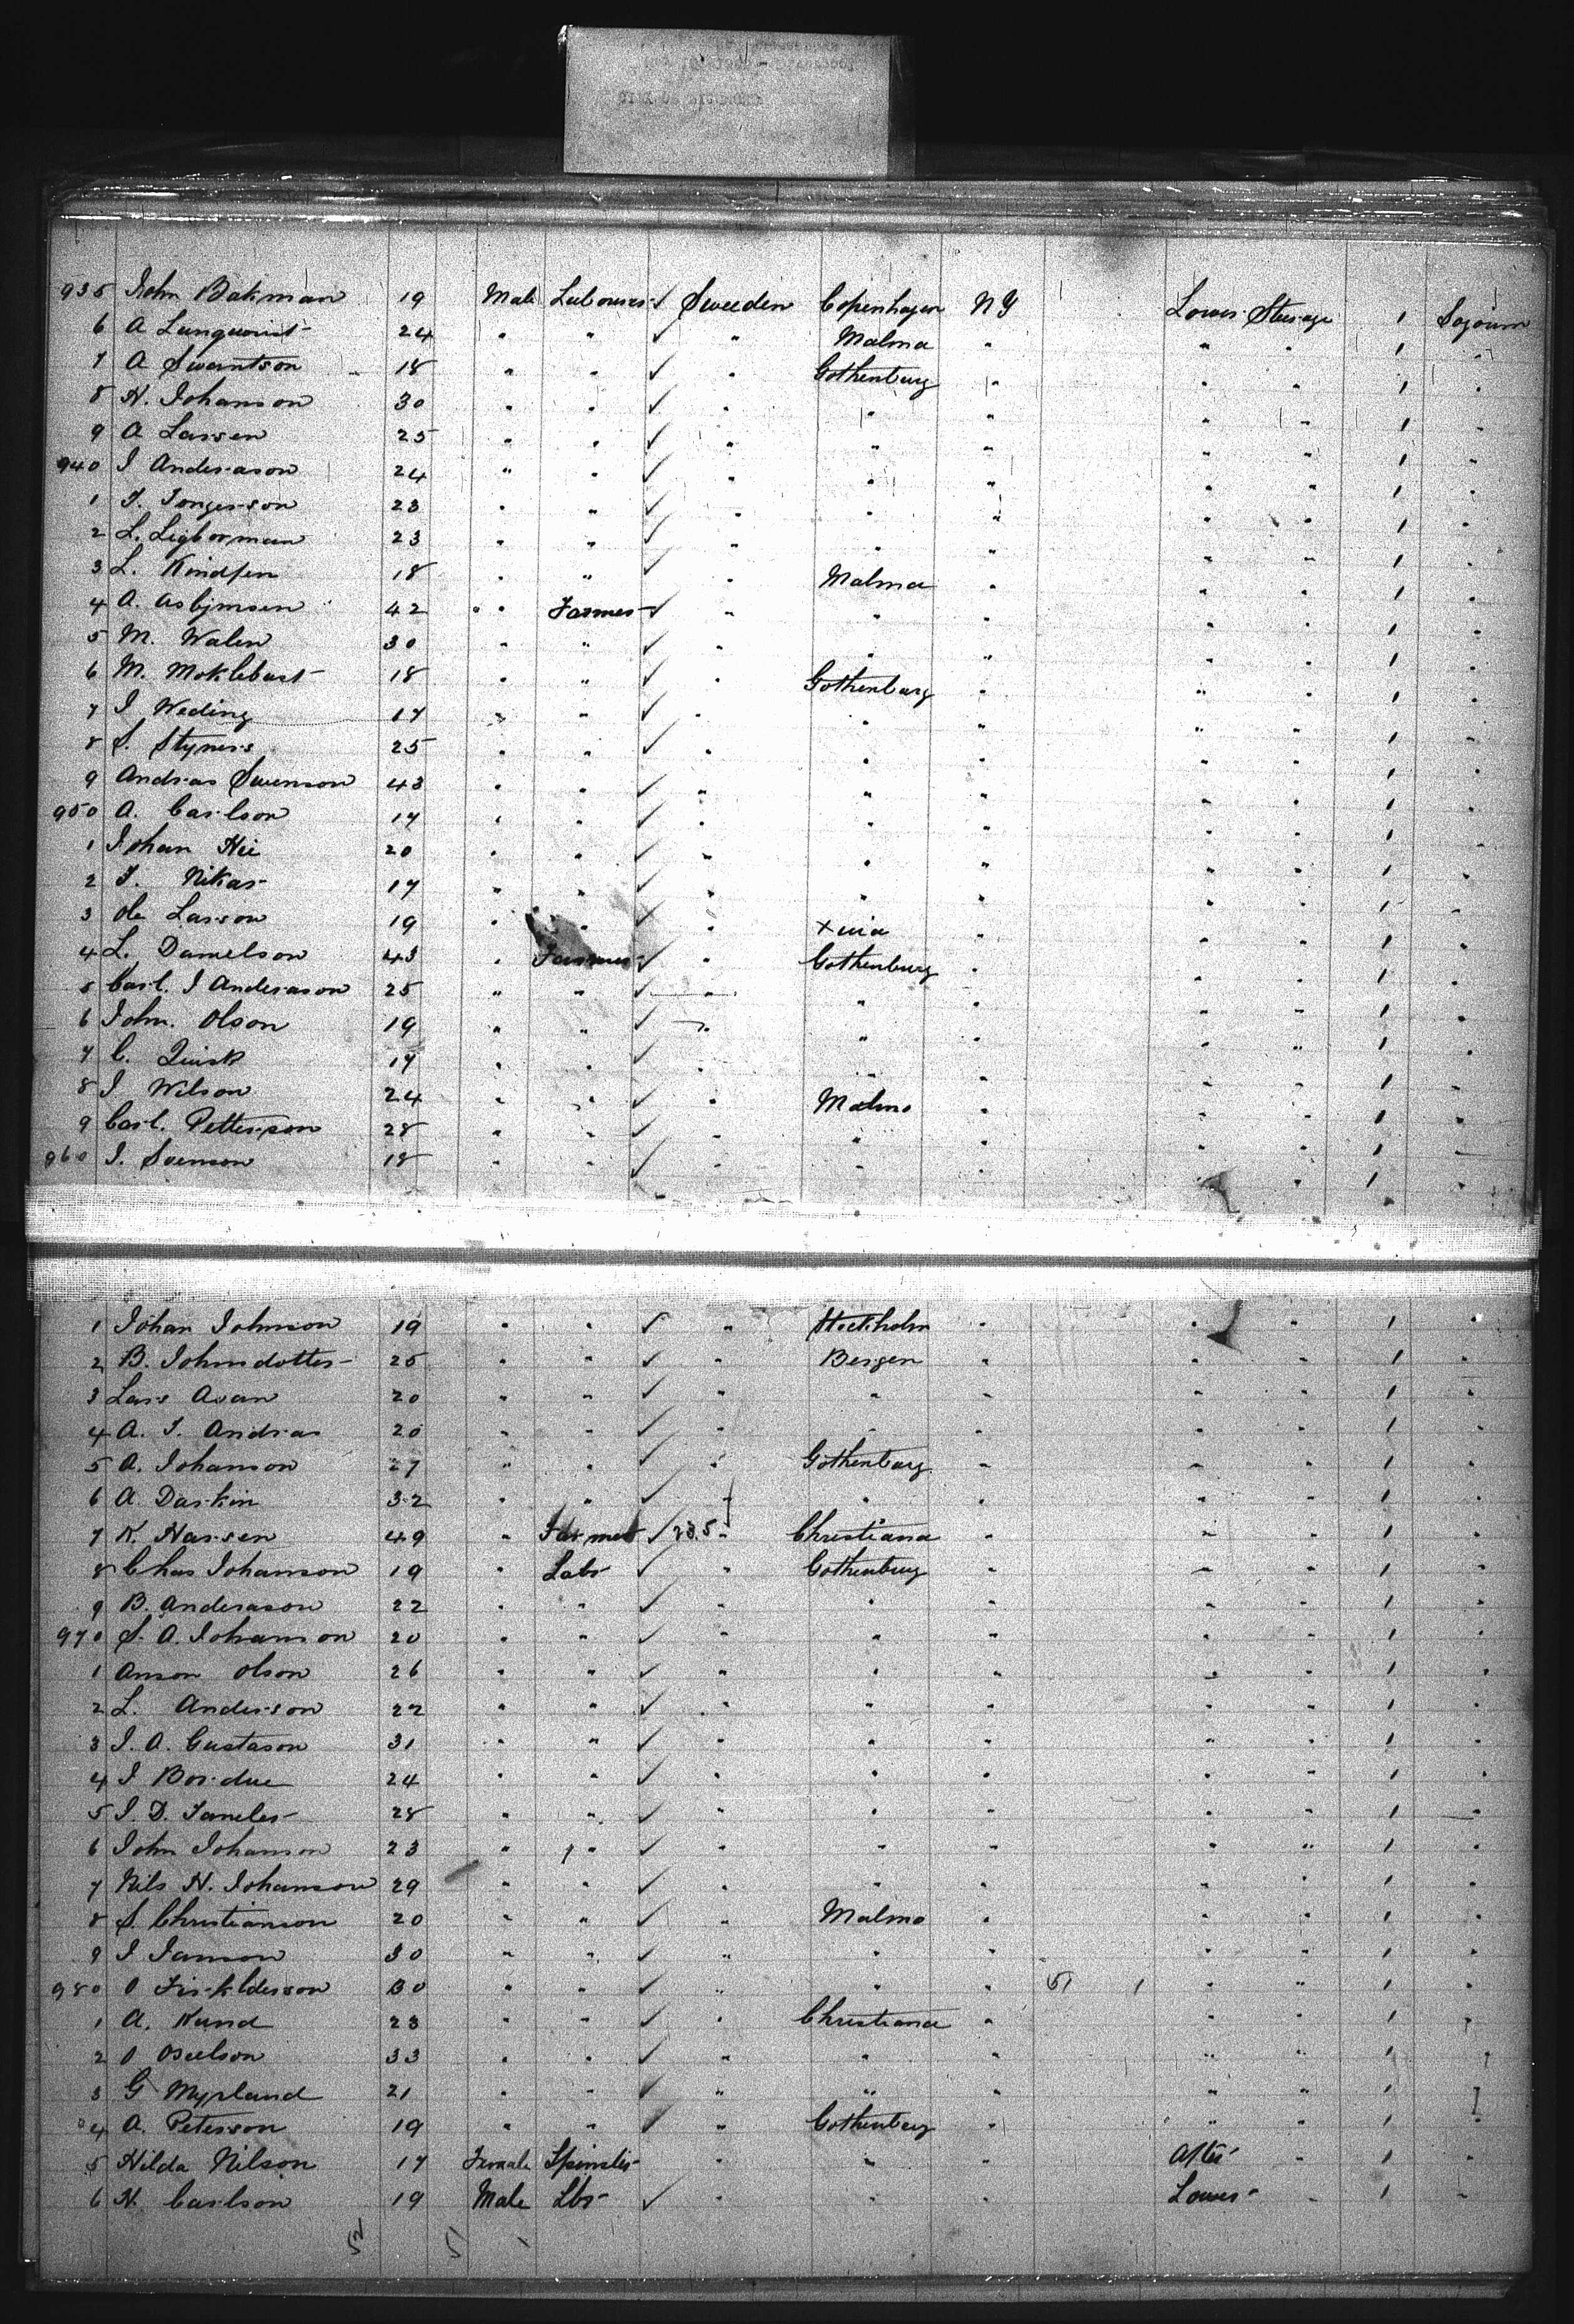 935 John Bakman 19 Male Labourer ✓ Sweeden Copenhagen NY Lower Steerage 1 Sojourn
6 A Lunquvist 24 " " ✓ " Malma " " " 1 "
7 A Swantson 18 " " ✓ " Gothenburg " " " 1 "
8 H. Johanson 30 " " ✓ " " " " " 1 "
9 A Larsen 25 " " ✓ " " " " " 1 "
940 J Anderason 24 " " ✓ " " " " " 1 "
1 J. Jongerson 23 " " ✓ " " " " " 1 "
2 L. Ligborman 23 " " ✓ " " " " " 1 "
3 L. 18 " " ✓ " Malma " " " 1 "
4 A. Asbjmsen 42 " " Farmer ✓ " " " " " 1 "
5 M. Walen 30 " " ✓ " " " " " 1 "
6 M. Moklebust 18 " " ✓ " Gothenburg " " " 1 "
7 J Weding 17 " " ✓ " " " " " 1 "
8 S. Styners 25 " " ✓ " " " " " 1 "
9 Andras Swenson 43 " " ✓ " " " " " 1 "
950 A. Carlson 17 " " ✓ " " " " " 1 "
1 Johan Hie 20 " " ✓ " " " " " 1 "
2 J. Nikar 17 " " ✓ " " " " " 1 "
3 Ole Larson 19 " " ✓ " Xnia " " " 1 "
4 L. Damelson 43 " Farmer ✓ " Gothenburg " " " 1 "
5 Carl. J Anderason 25 " " ✓ " " " " " 1 "
6 John. Olson 19 " " ✓ " " " " " 1 "
7 C. 17 " " ✓ " " " " " 1 "
8 J Wilson 24 " " ✓ " Malmo " " " 1 "
9 Carl. Petterson 28 " " ✓ " " " " " 1 "
960 J. Svenson 18 " " ✓ " " " " " 1 "
1 Johan Johnson 19 " " ✓ " Stockholm " " " 1 "
2 B. Johnsdotter 25 " " ✓ " Bergen " " " 1 "
3 Lars Asan 20 " " ✓ " " " " " 1 "
4 A. J. Andras 20 " " ✓ " " " " " 1 "
5 A. Johanson 27 " " ✓ " Gothenburg " " " 1 "
6 A. Darkin 32 " " ✓ " " " " " 1 "
7 K. Harsen 49 " Farmer ✓ " Christiana " " " 1 "
8 Chas Johanson 19 " Labr ✓ " Gothenburg " " " 1 "
9 B. Anderason 22 " " ✓ " " " " " 1 "
970 S. A. Johanson 20 " " ✓ " " " " " 1 "
1 Anson Olson 26 " " ✓ " " " " " 1 "
2 L. Anderson 22 " " ✓ " " " " " 1 "
3 J. A. Gustason 31 " " ✓ " " " " " 1 "
4 J Bordue 24 " " ✓ " " " " " 1 "
5 J. D. Janeler 28 " " ✓ " " " " " 1 "
6 John Johanson 23 " " ✓ " " " " " 1 "
7 Nils H. Johanson 29 " " ✓ " " " " " 1 "
8 S. Christianson 20 " " ✓ " Malmo " " " 1 "
9 J Janson 30 " " ✓ " " " " " 1 "
980 O 30 " " ✓ " " " 51 1 " " 1 "
1 A. Kund 23 " " ✓ " Christiana " " " 1 "
2 O Oselson 33 " " ✓ " " " " " 1 "
3 G Myrland 21 " " ✓ " " " " " 1 "
4 A. Peterson 19 " " ✓ " Gothenburg " " " 1 "
5 Hilda Nilson 17 Female Spinster " " " After " 1 "
6 H. Carlson 19 Male Lbr ✓ " " " Lower " 1 "